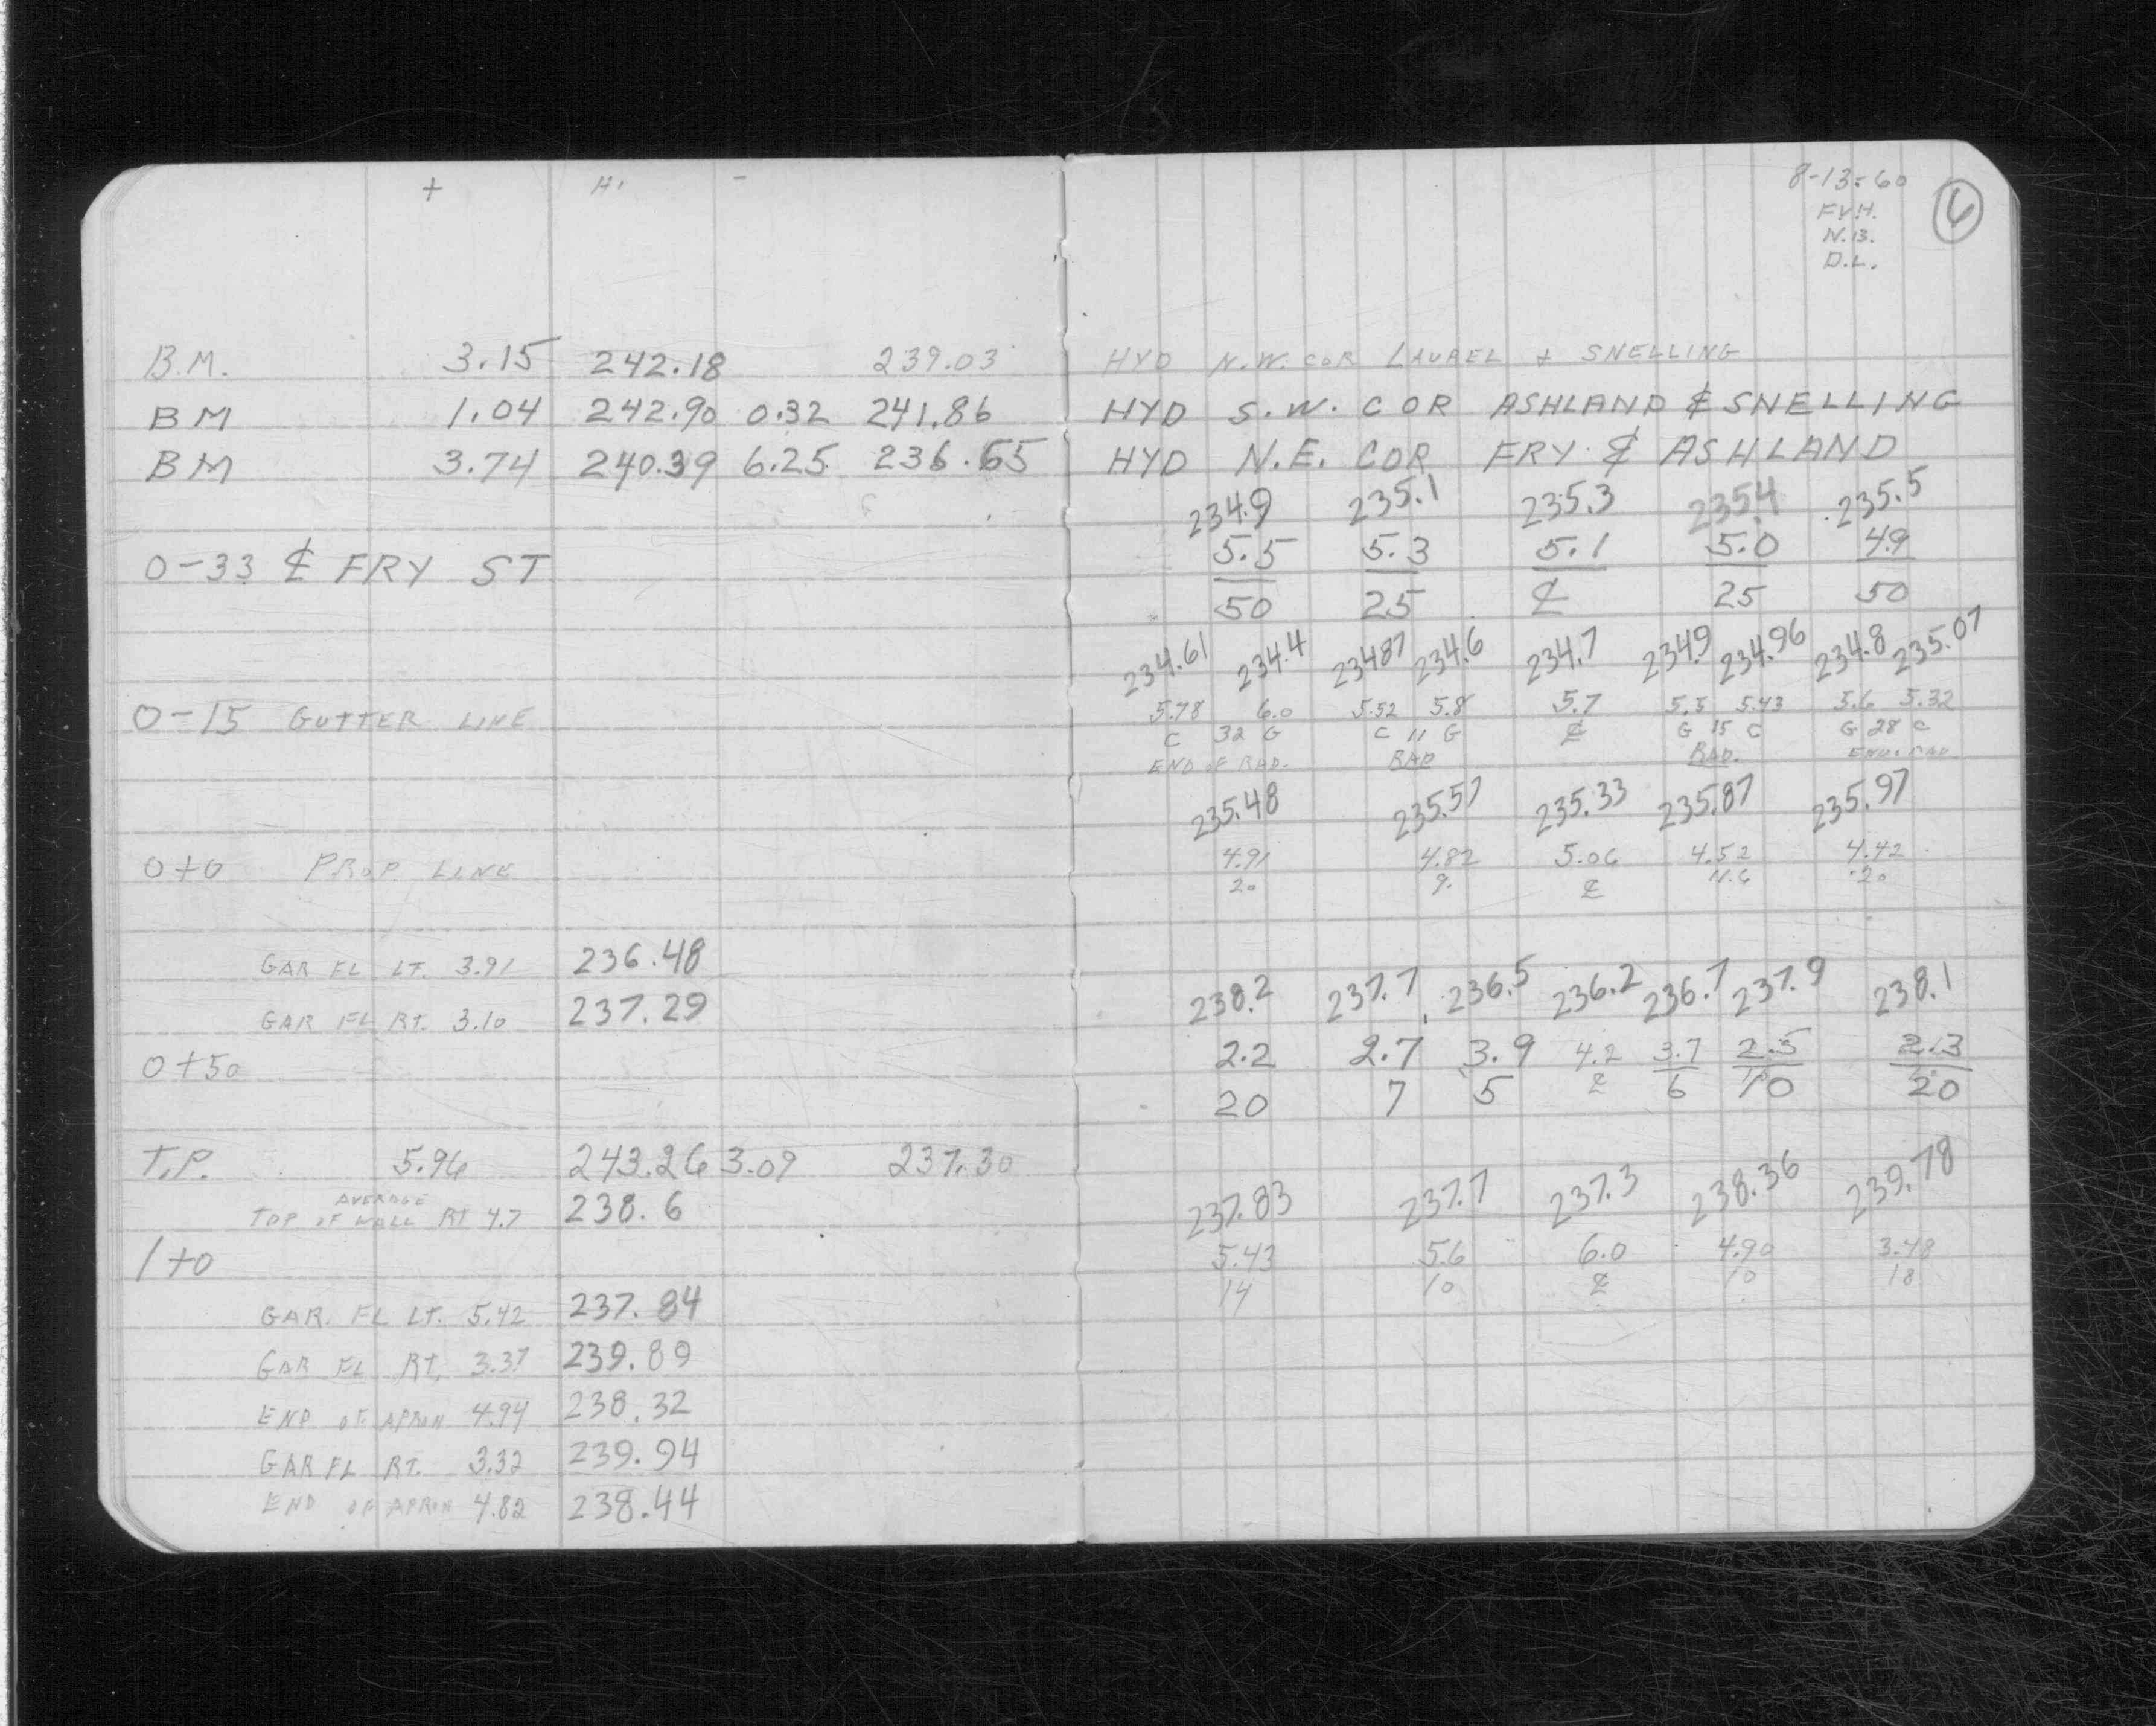 + HI -
B.M. 3.15 242.18 239.03
BM 1.04 242.90 0.32 241.86
BM 3.74 240.39 6.25 236.65
0-33 ₵ FRY ST
0-15 GUTTER LINE
0+0 PROP. LINE
GAR FL LT. 3.91 236.48
GAR FL RT. 3.10 237.29
0+50
T.P. 5.96 243.26 3.09 237.30
AVERAGE
TOP OF WALL RT 4.7 238.6
1+0
GAR. FL LT. 5.42 237.84
GAR FL RT. 3.37 239.89
END OF APRON 4.94 238.32
GAR FL RT. 3.32 239.94
END OF APRON 4.82 238.44
8-13-60
6
F.V.H.
N.B.
D.L.
HYD N.W. COR LAUREL & SNELLING
HYD S.W. COR ASHLAND & SNELLING
HYD N.E. COR FRY & ASHLAND
234.9 235.1 235.3 235.4 235.5
5.5 5.3 5.1 5.0 4.9
50 25 ₵ 25 50
234.61 234.4 234.87 234.6 234.7 234.9 234.96 234.8 235.07
5.78 6.0 5.52 5.8 5.7 5.5 5.43 5.6 5.32
C 32 G C 11 G ₵ G 15 C G 28 C
END OF RAD. RAD RAD. END RAD.
235.48 235.57 235.33 235.87 235.97
4.91 4.82 5.06 4.52 4.42
20 9. ₵ 11.6 20
238.2 237.7 236.5 236.2 236.7 237.9 238.1
2.2 2.7 3.9 4.2 3.7 2.5 2.3
20 7 5 ₵ 6 10 20
237.83 237.7 237.3 238.36 239.78
5.43 5.6 6.0 4.90 3.48
14 10 ₵ 10 18